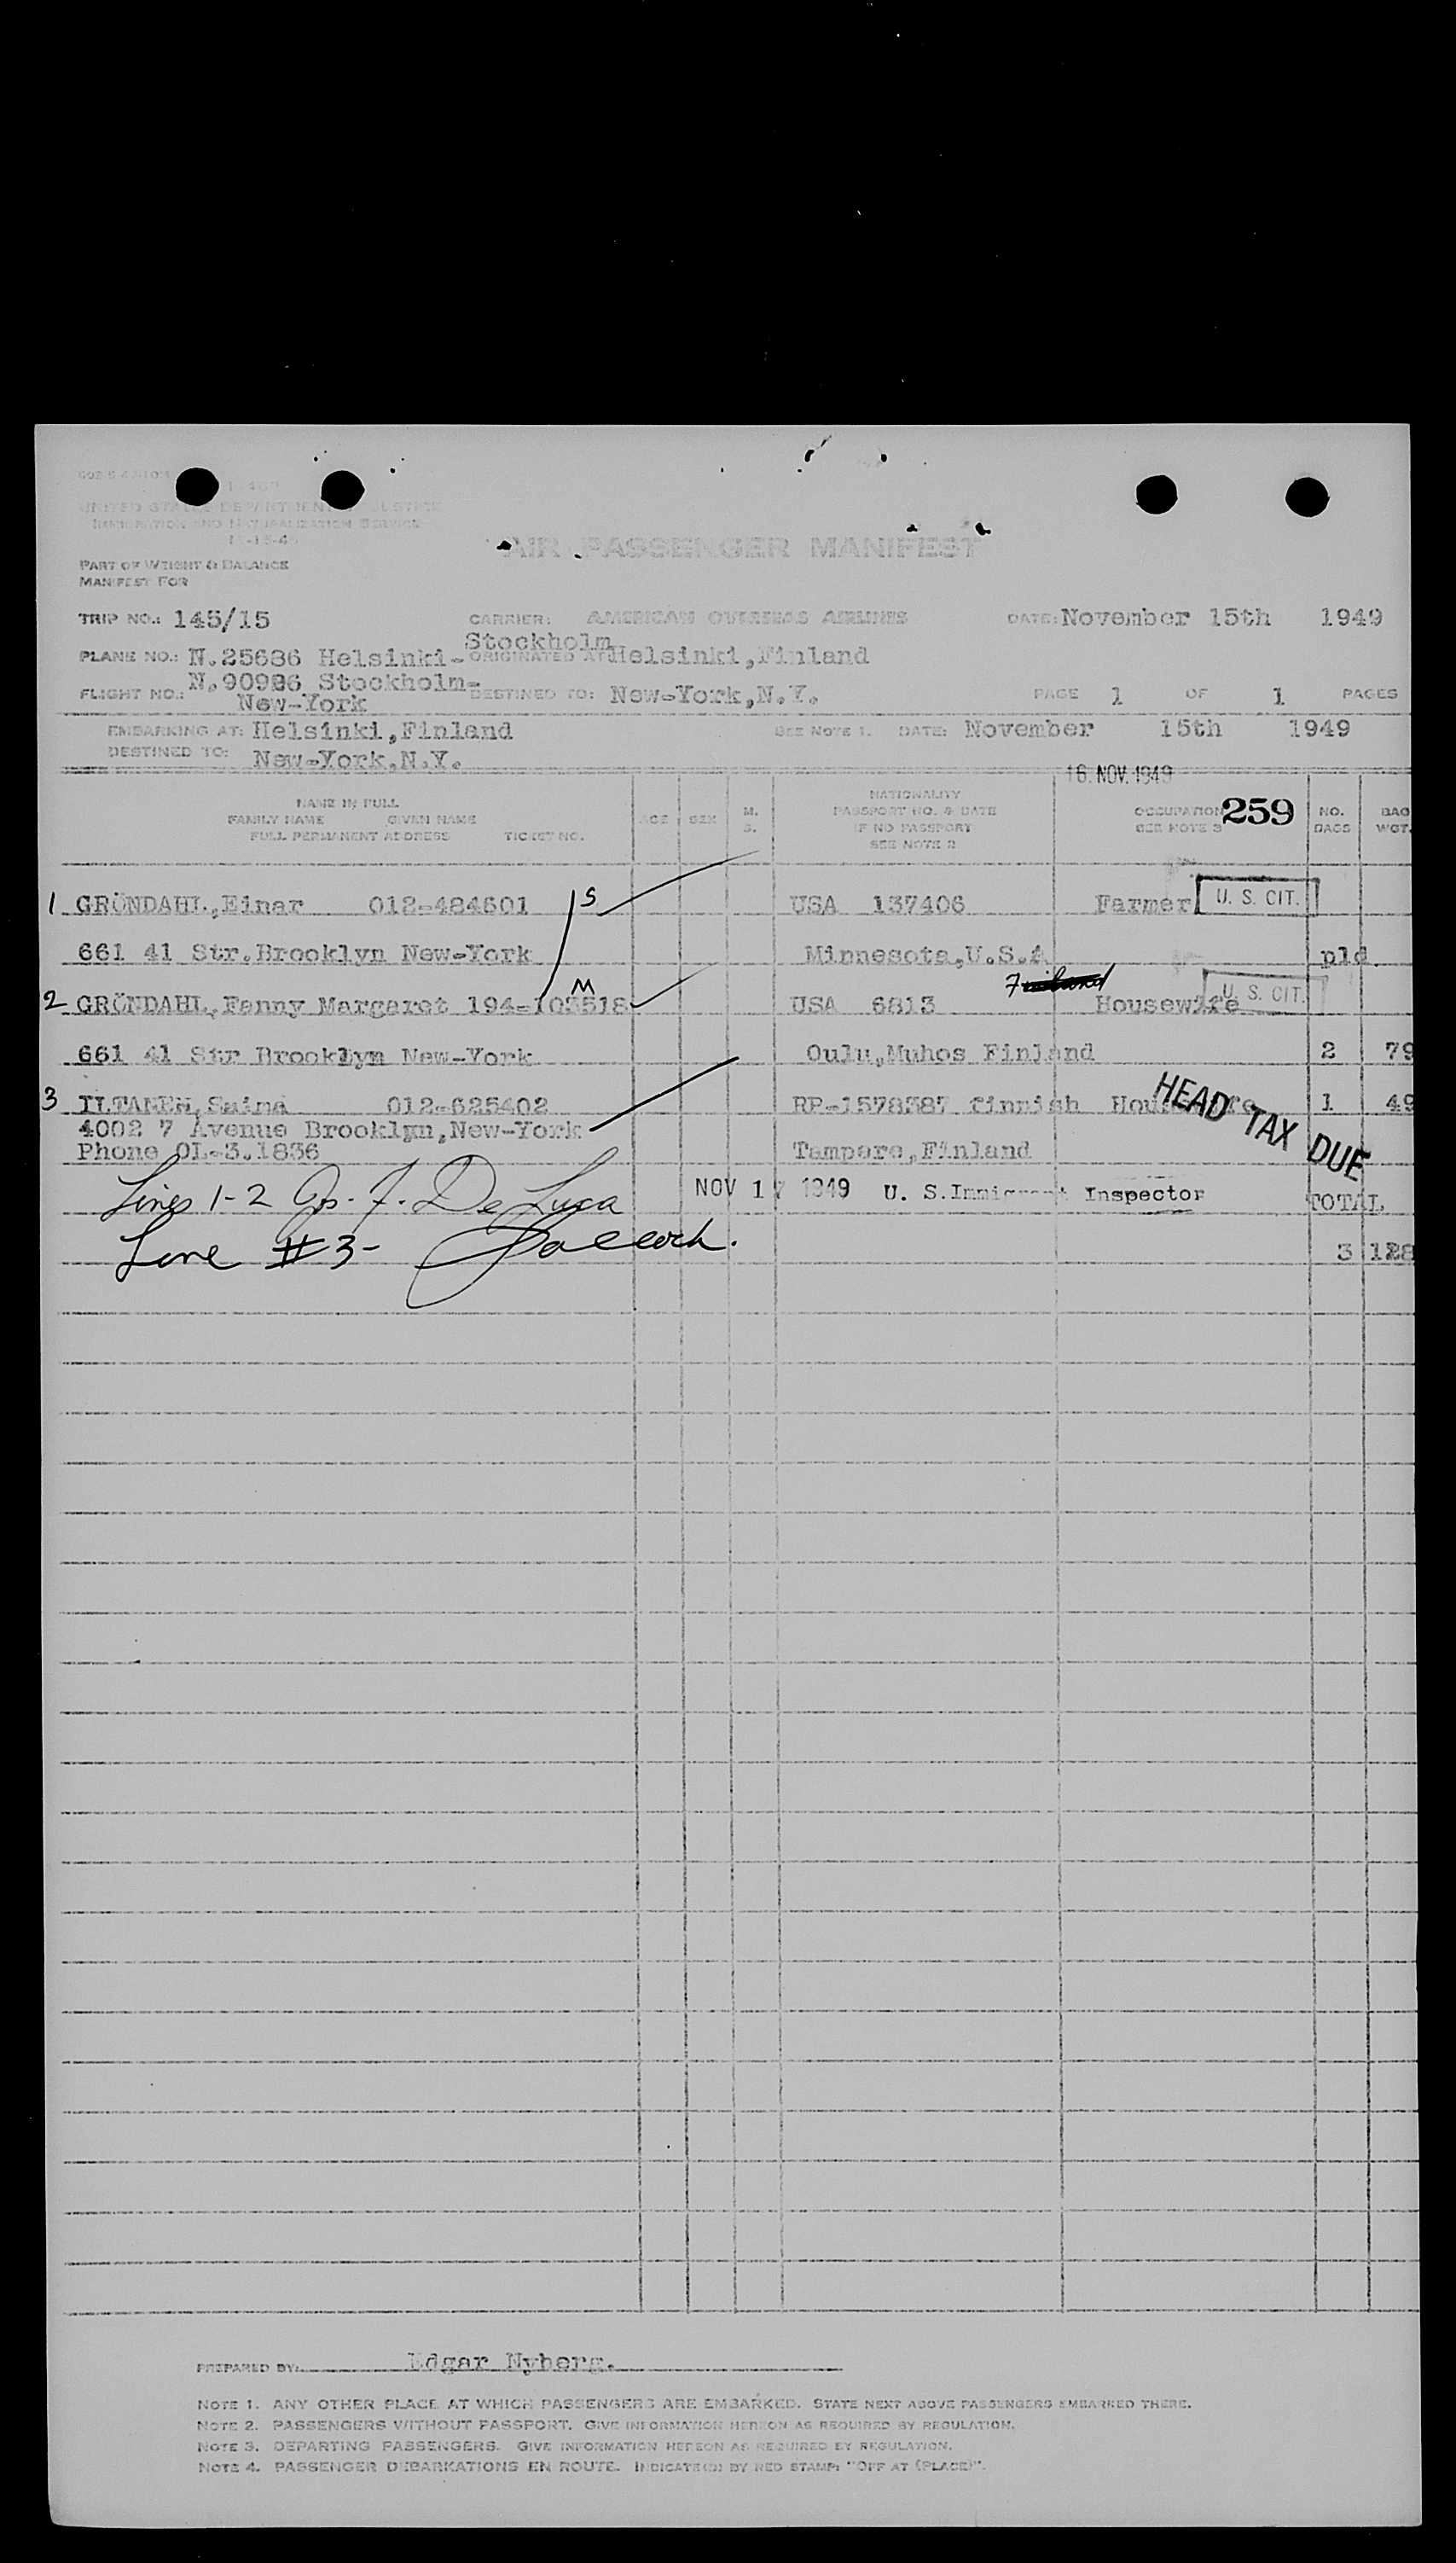 UNITED STATES DEPARTMENT OF JUSTICE
IMMIGRATION AND NATURALIZATION SERVICE
AIR PASSENGER MANIFEST
PART OF WEIGHT & BALANCE
MANIFEST FOR
TRIP NO.: 145/15 CARRIER: AMERICAN OVERSEAS AIRLINES DATE: November 15th 1949
Stockholm
PLANE NO.: N.25686 Helsinki- ORIGINATED AT Helsinki,Finland
N.90986 Stockholm-
FLIGHT NO.: New-York DESTINED TO: New-York,N.Y. PAGE 1 OF 1 PAGES
EMBARKING AT: Helsinki,Finland SEE NOTE 1. DATE: November 15th 1949
DESTINED TO: New-York,N.Y.
16. NOV. 1949
NAME IN FULL
FAMILY NAME GIVEN NAME
FULL PERMANENT ADDRESS TICKET NO.
AGE SEX M. S.
NATIONALITY
PASSPORT NO. & DATE
IF NO PASSPORT
SEE NOTE 2
OCCUPATION
SEE NOTE 3
259
NO. BAGS
BAG WGT.
1 GRÖNDAHL,Einar 012-484601 S USA 137406 Farmer U. S. CIT.
661 41 Str.Brooklyn New-York Minnesota,U.S.A pld
M Finland
2 GRÖNDAHL,Fanny Margaret 194-103518 USA 6813 Housewife U. S. CIT.
661 41 Str Brooklyn New-York Oulu,Muhos Finland 2 79
3 ILTANEN,Saima 012-625402 RP-1578387 finnish Housewife 1 49
HEAD TAX DUE
4002 7 Avenue Brooklyn,New-York
Phone OL-3.1836 Tampere,Finland
Lines 1-2 Jos. F. De Luca NOV 17 1949 U. S.Immigrant Inspector TOTAL
Line #3-
3 128
PREPARED BY: Edgar Nyberg.
NOTE 1. ANY OTHER PLACE AT WHICH PASSENGERS ARE EMBARKED. STATE NEXT ABOVE PASSENGERS EMBARKED THERE.
NOTE 2. PASSENGERS WITHOUT PASSPORT. GIVE INFORMATION HEREON AS REQUIRED BY REGULATION.
NOTE 3. DEPARTING PASSENGERS. GIVE INFORMATION HEREON AS REQUIRED BY REGULATION.
NOTE 4. PASSENGER DEBARKATIONS EN ROUTE. INDICATE(D) BY RED STAMP: "OFF AT (PLACE)".